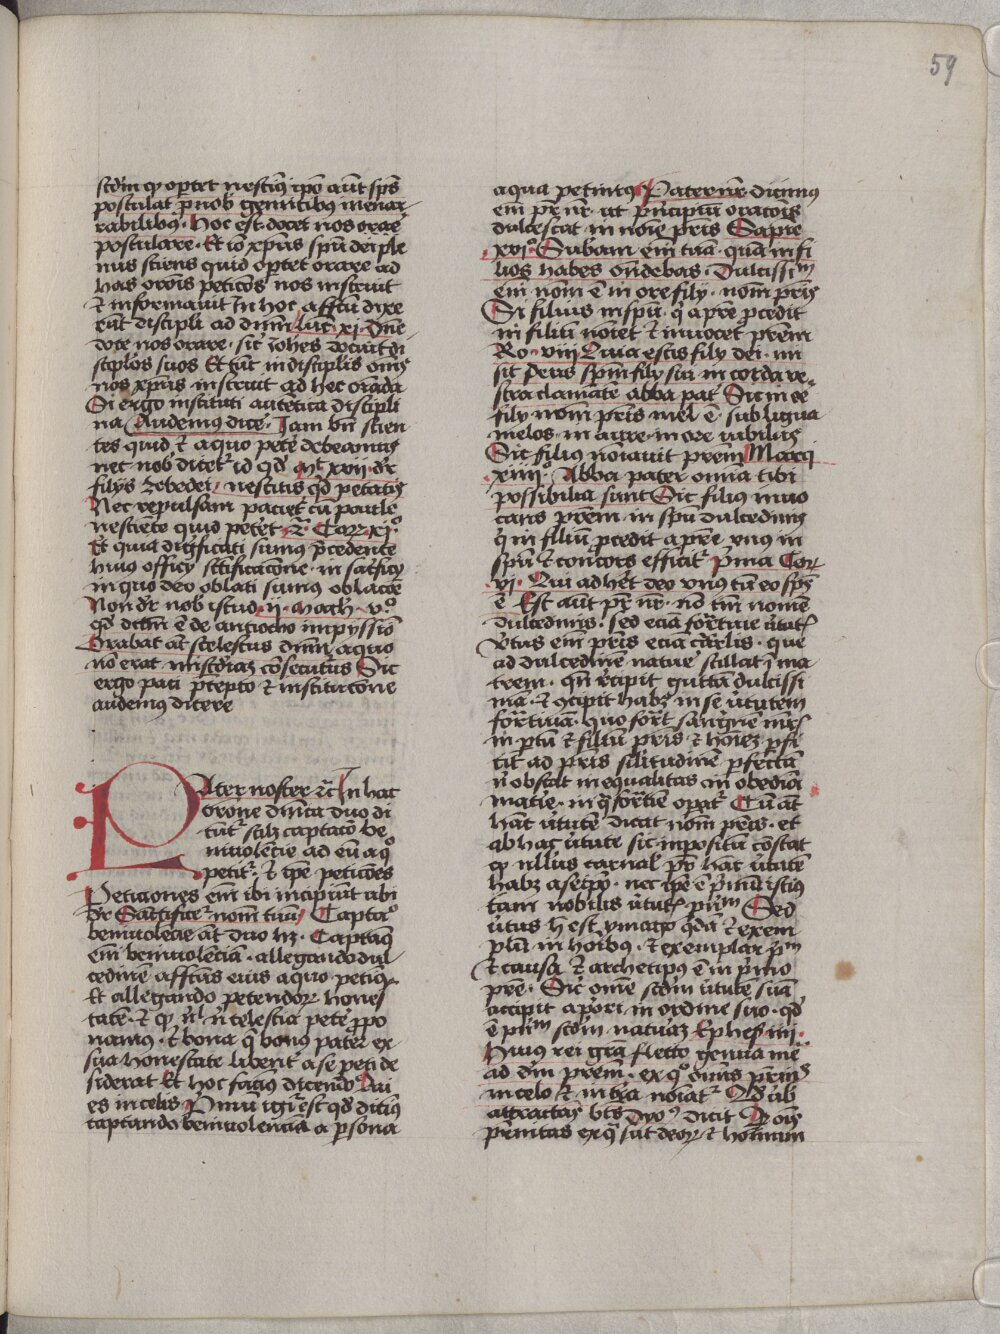 59
scdm qp oportet nescimus ipse aut sps
postulat pro nob gemitibus inenar
rabilibus. Hoc est docet nos orare
postulare. Et io xpus spu dei ple
nus sciens quid oportet orare ad
has orois peticoes nos instruit
et informauit In hoc affcu dixe
rut discipli ad dnm luc xi. Dne
doce nos orare. sic iohes docuit di
sciplos suos Et tuc in discipulis omes
nos xpus instruit ad hec oranda
Si ergo instituti autetica discipli
na Audemus dice. Iam bn scien
tes quid et a quo pete debeamus
nec nob dicetur id qd mt xxvii. dr
filijs zebedei. nescitis qd petatis
Nec repulsam paciet cu paulo
nesciente quid petet. 2 Corr xij
Et quia digificati sumus precedente
huius officij sctificacone. in sacficio
in quo deo oblati sumus oblacoe
Non dr nob istud. ij. mach. v.
qd dcm e de anthiocho impyssio
Orabat at scelestus dnm a quo
no erat miscdiaz consecuturus Sic
ergo pati precepto et institucone
audemus dicere
Pater noster rc In hac
orone dnica duo di
cunt scilz captaco be
niuolencie ad eu a quo
petitur. et ipse peticoes
Peticiones em ibi incipiut ubi
dr Sanctificetur nom tuu Captaco
beniuolecie at duo hz. Captamus
em beniuolencia. allegando dul
cedine affcus eius a quo petimus
Et allegando petendor hones
tate. et qp n celestia pete propo
namus. et bona que bonus pater ex
sua honestate libent a se peti de
siderat Et hoc facimus dicendo Qui
es in celis Primu igr est qd dicimus
captando beniuolencia a persona
aqua petimus Pater nr dicimus
em pr nr. ut principiu oracois
dulcescat in noie pris Sapie
xvi Subam em tua qua in fi
lios habes ondebas. Dulcissim
em nom e in ore filij. nom pris
Si filius in spu. qui a pre procedit
in filiu noiet et inuocet prem
Ro. viii Quia estis filij dei. mi
sit deus spm filij sui in corda ve
stra clamate abba pater Sic in ore
filij nom pris mel e. sub ligua
melos. in aure. in ore iubilus
Sic filius noiauit prem Marci
xiiij Abba pater omia tibi
possibilia sunt Sic filius inuo
cans prem. in spu dulcedinis
qui in filiu procedit a pre. vnus in
spu et concors efficitur prima Cor
vi. Qui adheret deo vnus cu eo sps
e Est aut pr nr. no tm nomen
dulcedinis. sed ecia formatiue virtutis
Virtus em pris ecia carlis. que
ad dulcedine nature stillat in ma
trem. qn recipit gutta dulcissi
ma. et concipit habz in se virtutem
formatiuam. quo format sanguine mris
in partu et filiu pris. et hoiez perfi
cit ad pris similitudine perfecta
n obstat inequalitas in obedia
matie. in qua formatie operatur Cu at
hac virtute dicat nom pris. et
ab hac virtute sit impositu constat
qp nullus carnal pr hac virtute
habz a seipo. nec ipe e primus istius
tam nobilis virtutis prim Sed
virtus h est ymago qda et exem
plu in hoibus. et exemplar prim
et causa et archetipus e in primo
pre. Sic omne scdm virtute sua
accipit a priori in ordine suo. qd
e prim scdm naturaz Ephes iiii
Huius rei gra flecto genua me
ad dm prem. ex quo omis prems
in celo et in terra noiatur Ad ub
attractas bts Dyo dicit Q ois
prnitas ex qua sut deor et hominum